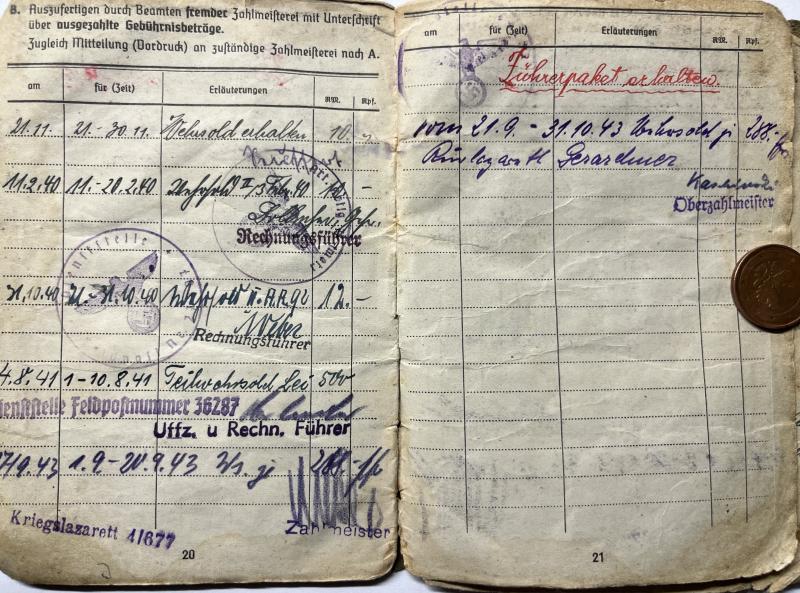 8. Auszufertigen durch Beamten fremder Zahlmeisterei mit Unterschrift
über ausgezahlte Gebührnisbeträge.
Zugleich Mitteilung (Vordruck) an zuständige Zahlmeisterei nach A.
am für (Zeit) Erläuterungen RM. Rpf.
21.11. 21.-30.11. Wehrsold erhalten 10.-
11.2.40 11.-20.2.40 Wehrsold 10 -
Rechnungsführer
31.10.40 21.-31.10.40 Wehrsold u. 12.-
Weber
Rechnungsführer
4.8.41 1-10.8.41 Teilwehrsold bei
Dienststelle Feldpostnummer 36287
Uffz. u Rechn. Führer
9.43 1.9.-20.9.43 288.-ffr
Kriegslazarett 4/677
Zahlmeister
20
am für (Zeit) Erläuterungen RM. Rpf.
Führerpaket erhalten.
vom 21.9. - 31.10.43 Wehrsold 288.-ffr
Gerardmer
Oberzahlmeister
21